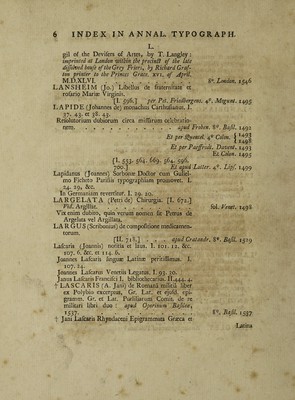 6 INDEX IN ANNAL. TYPOGRAPH.
L.
gil of the Devisers of Artes, by T. Langley:
imprinted at London within the precinct of the late
dissolved house of the Grey Friers, by Richard Graf-
ton printer to the Princes Grace. XVI. of April.
M.D.XLVI. 8°. London. 1546
LANSHEIM (Jo.) Libellos de fraternitate et
rosario Mariæ Virginis.
[I. 596.] per Pet. Friedbergens. 4°. Mogunt. 1495
LAPIDE (Johannes de) monachus Carthusianus. I.
37. 43. et 38. 43.
Resolutorium dubiorum circa missarum celebratio-
nem. . . . . . apud Froben. 8°. Basil. 1492
Et per Quentel. 4° Colon. { 1493
1493
Et per Paeffrodt. Datent. 1493
Et Colon. 1495
[I. 553. 564. 669. 564. 596.
700.] Et apud Lotter. 4°. Lips. 1499
Lapidanus (Joannes) Sorbonæ Doctor cum Guliel-
mo Ficheto Parisiis typographiam promovet. I.
24. 29, &c.
In Germaniam revertitur. I. 29. 20.
LARGELATA (Petri de) Chirurgia. [I. 672.]
Vid. Argillite. fol. Venet. 1498
Vix enim dubito, quin verum nomen sit Petrus de
Argelata vel Argillata.
LARGUS (Scribonius) de compositione medicamen-
torum.
[II. 718.] . . apud Cratandr. 8°. Basil. 1529
Lascaris (Joannis) notitia et laus. I. 101. 12. &c.
107. 6. &c. et 114. 6.
Joannes Lascaris linguæ Latinæ peritissimus. I.
107. 14.
Joannes Lascaris Venetiis Legatus. I. 93. 20.
Janus Lascaris Francisci I. bibliothecarius. II. 444. 4.
† LASCARIS (A. Jani) de Romana militia liber
ex Polybio excerptus, Gr. Lat. et ejusd. epi-
gramm. Gr. et Lat. Pusillarium Comit. de re
militari libri duo: apud Oporinum Basileæ,
1537. . . . . . . 8°. Basil. 1537
† Jani Lascaris Rhyndaceni Epigrammata Græca et
Latina